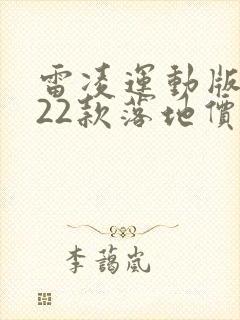 雷凌運動版
22款落地價
李藹嵐